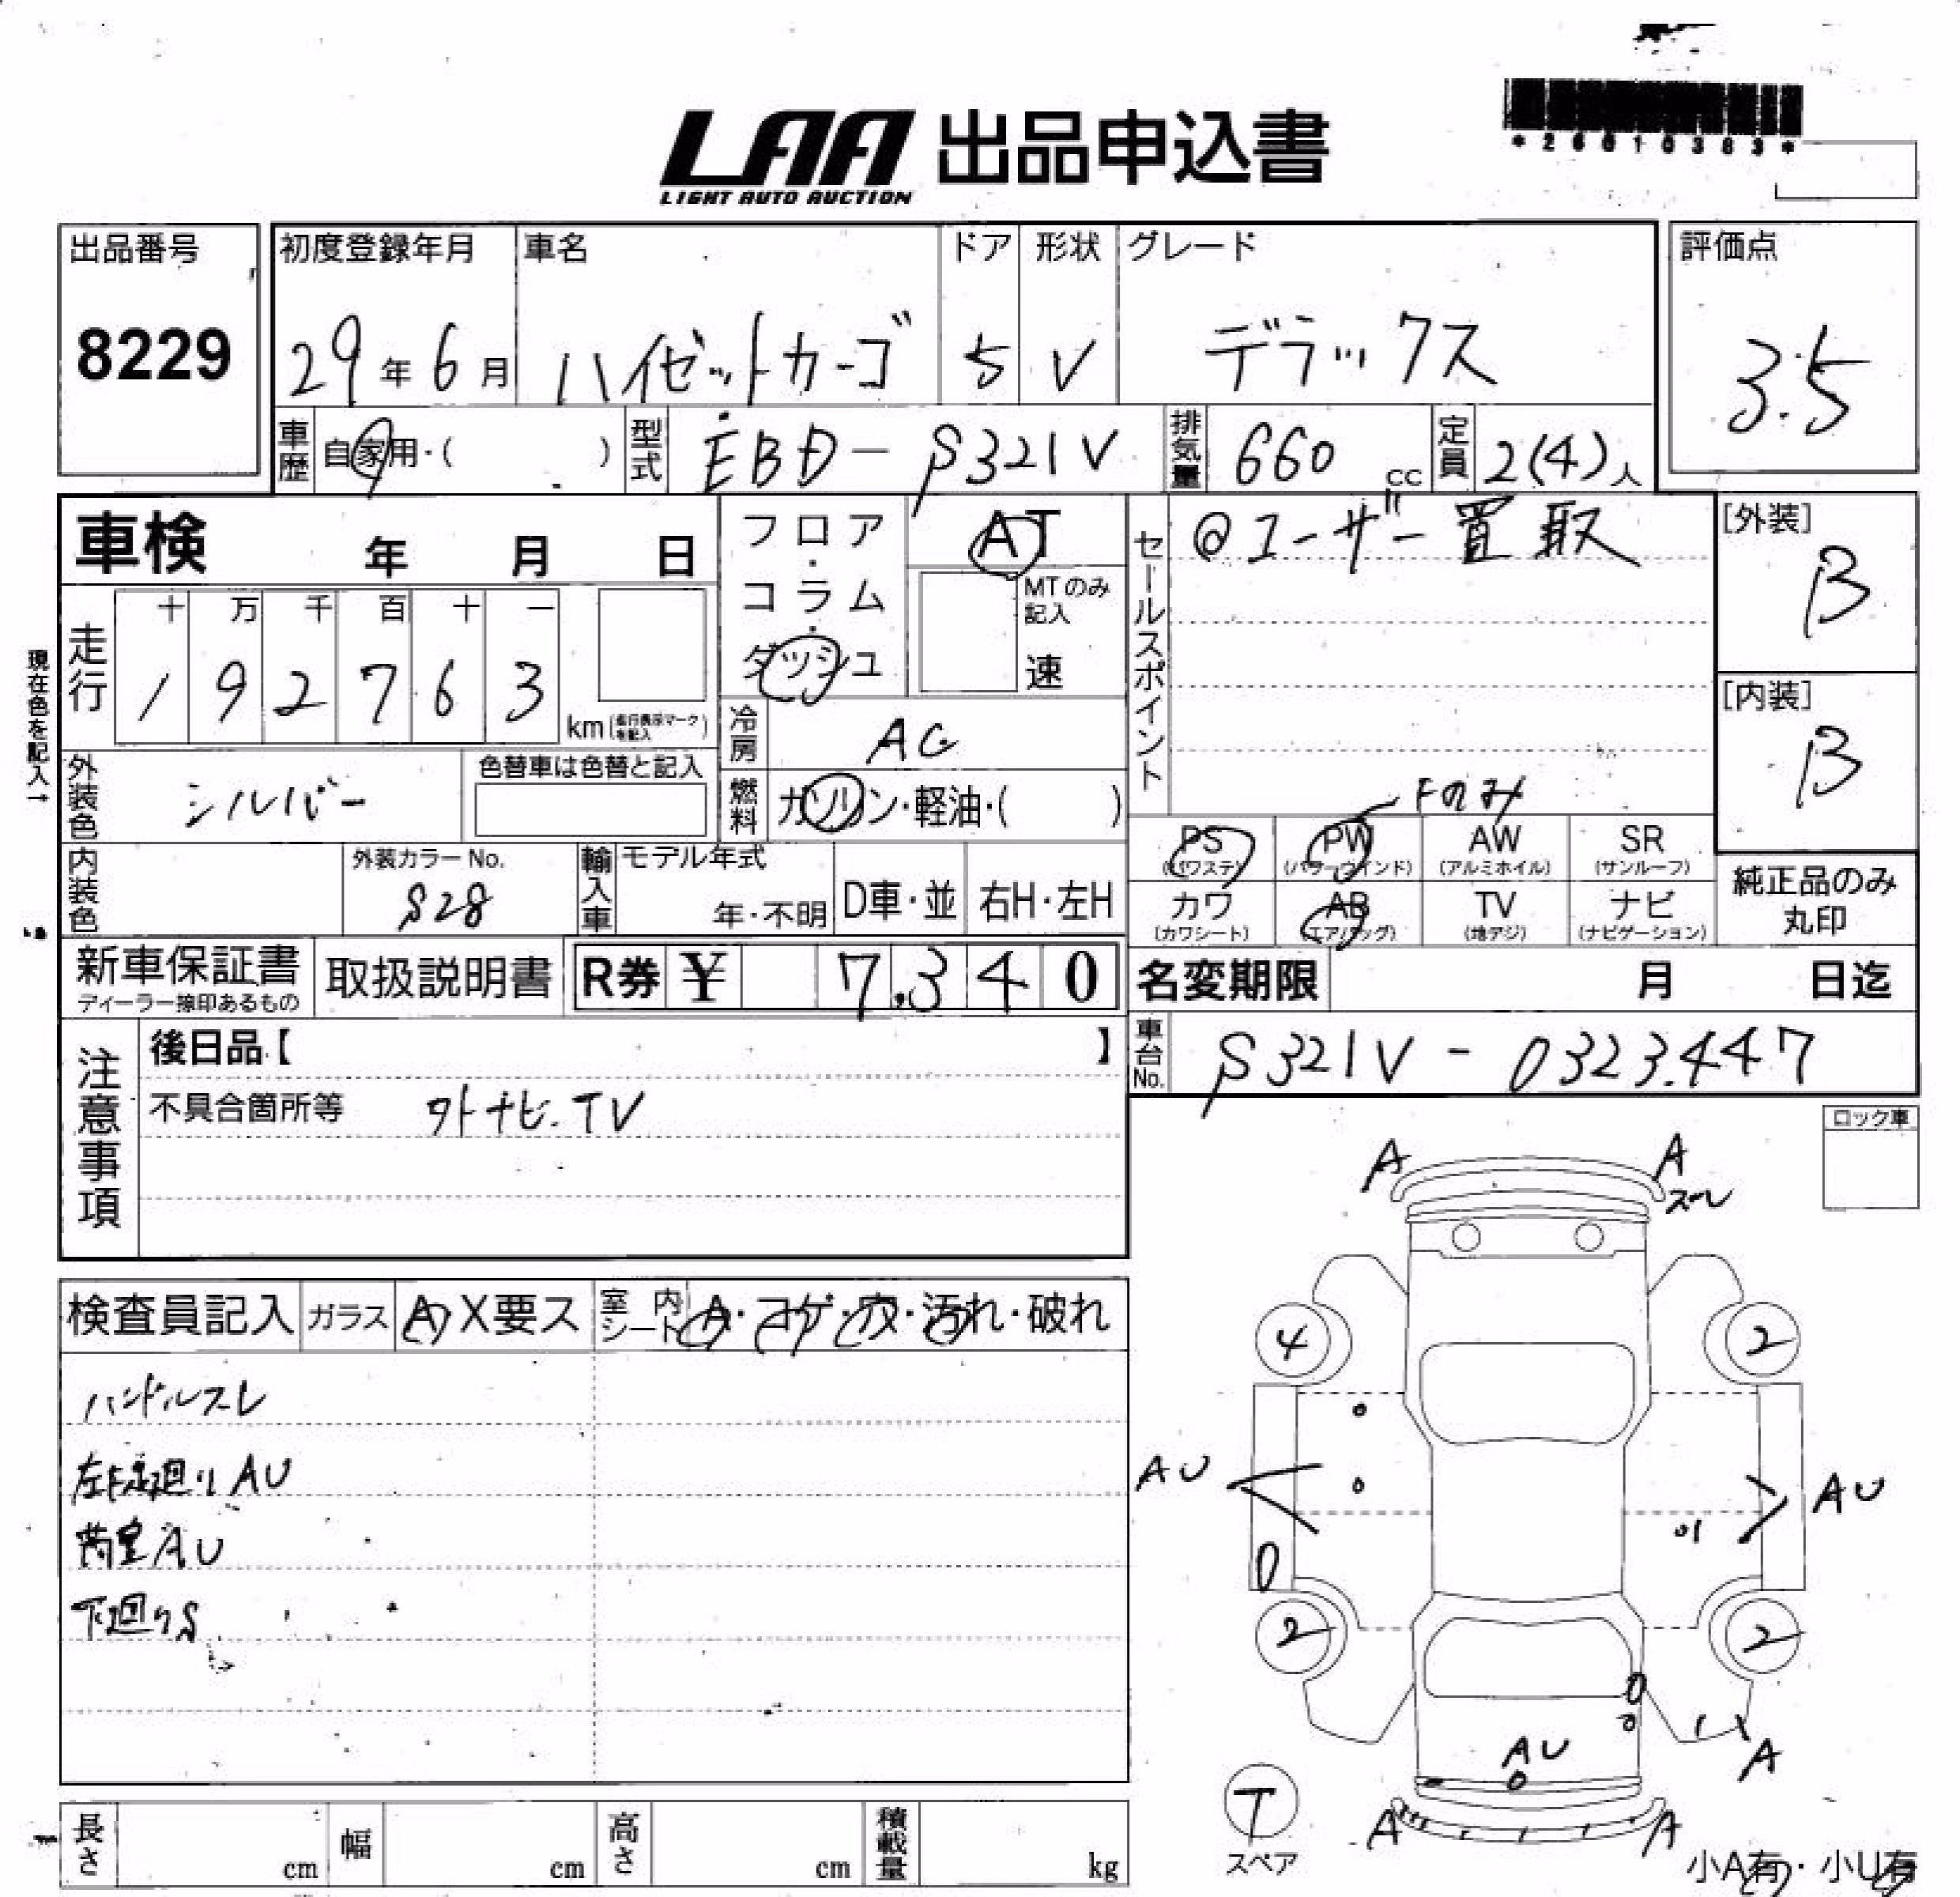 *26010383*
LAA 出品申込書
LIGHT AUTO AUCTION
出品番号
8229
初度登録年月
29年6月
車名
ハイゼットカーゴ
ドア
5
形状
V
グレード
デラックス
評価点
3.5
車歴 自家用・( )
型式 EBD-S321V
排気量 660 cc
定員 2(4)人
車検 年 月 日
フロア・コラム・ダッシュ
AT
MTのみ記入
速
セールスポイント
@ユーザー買取
[外装]
B
[内装]
B
現在色を記入→
走行
十 万 千 百 十 一
1 9 2 7 6 3
km(走行表示マークを記入)
冷房 AC
燃料 ガソリン・軽油・( )
外装色 シルバー
色替車は色替と記入
Fのみ
PS (パワステ)
PW (パワーウインド)
AW (アルミホイル)
SR (サンルーフ)
カワ (カワシート)
AB (エアバッグ)
TV (地デジ)
ナビ (ナビゲーション)
純正品のみ丸印
内装色
外装カラーNo.
S28
輸入車
モデル年式
年・不明
D車・並
右H・左H
新車保証書
ディーラー捺印あるもの
取扱説明書
R券 ¥ 7,340
名変期限 月 日迄
車台No. S321V-0323447
注意事項
後日品【 】
不具合箇所等 外ナビ.TV
ロック車
検査員記入
ガラス A X要ス
室内シート A・コゲ・穴・汚れ・破れ
ハンドルスレ
AU
荷室AU
下廻りS
A
A
スレ
4
2
AU
AU
2
2
AU
A
A
A
T
スペア
小A有・小U有
長さ cm
幅 cm
高さ cm
積載量 kg